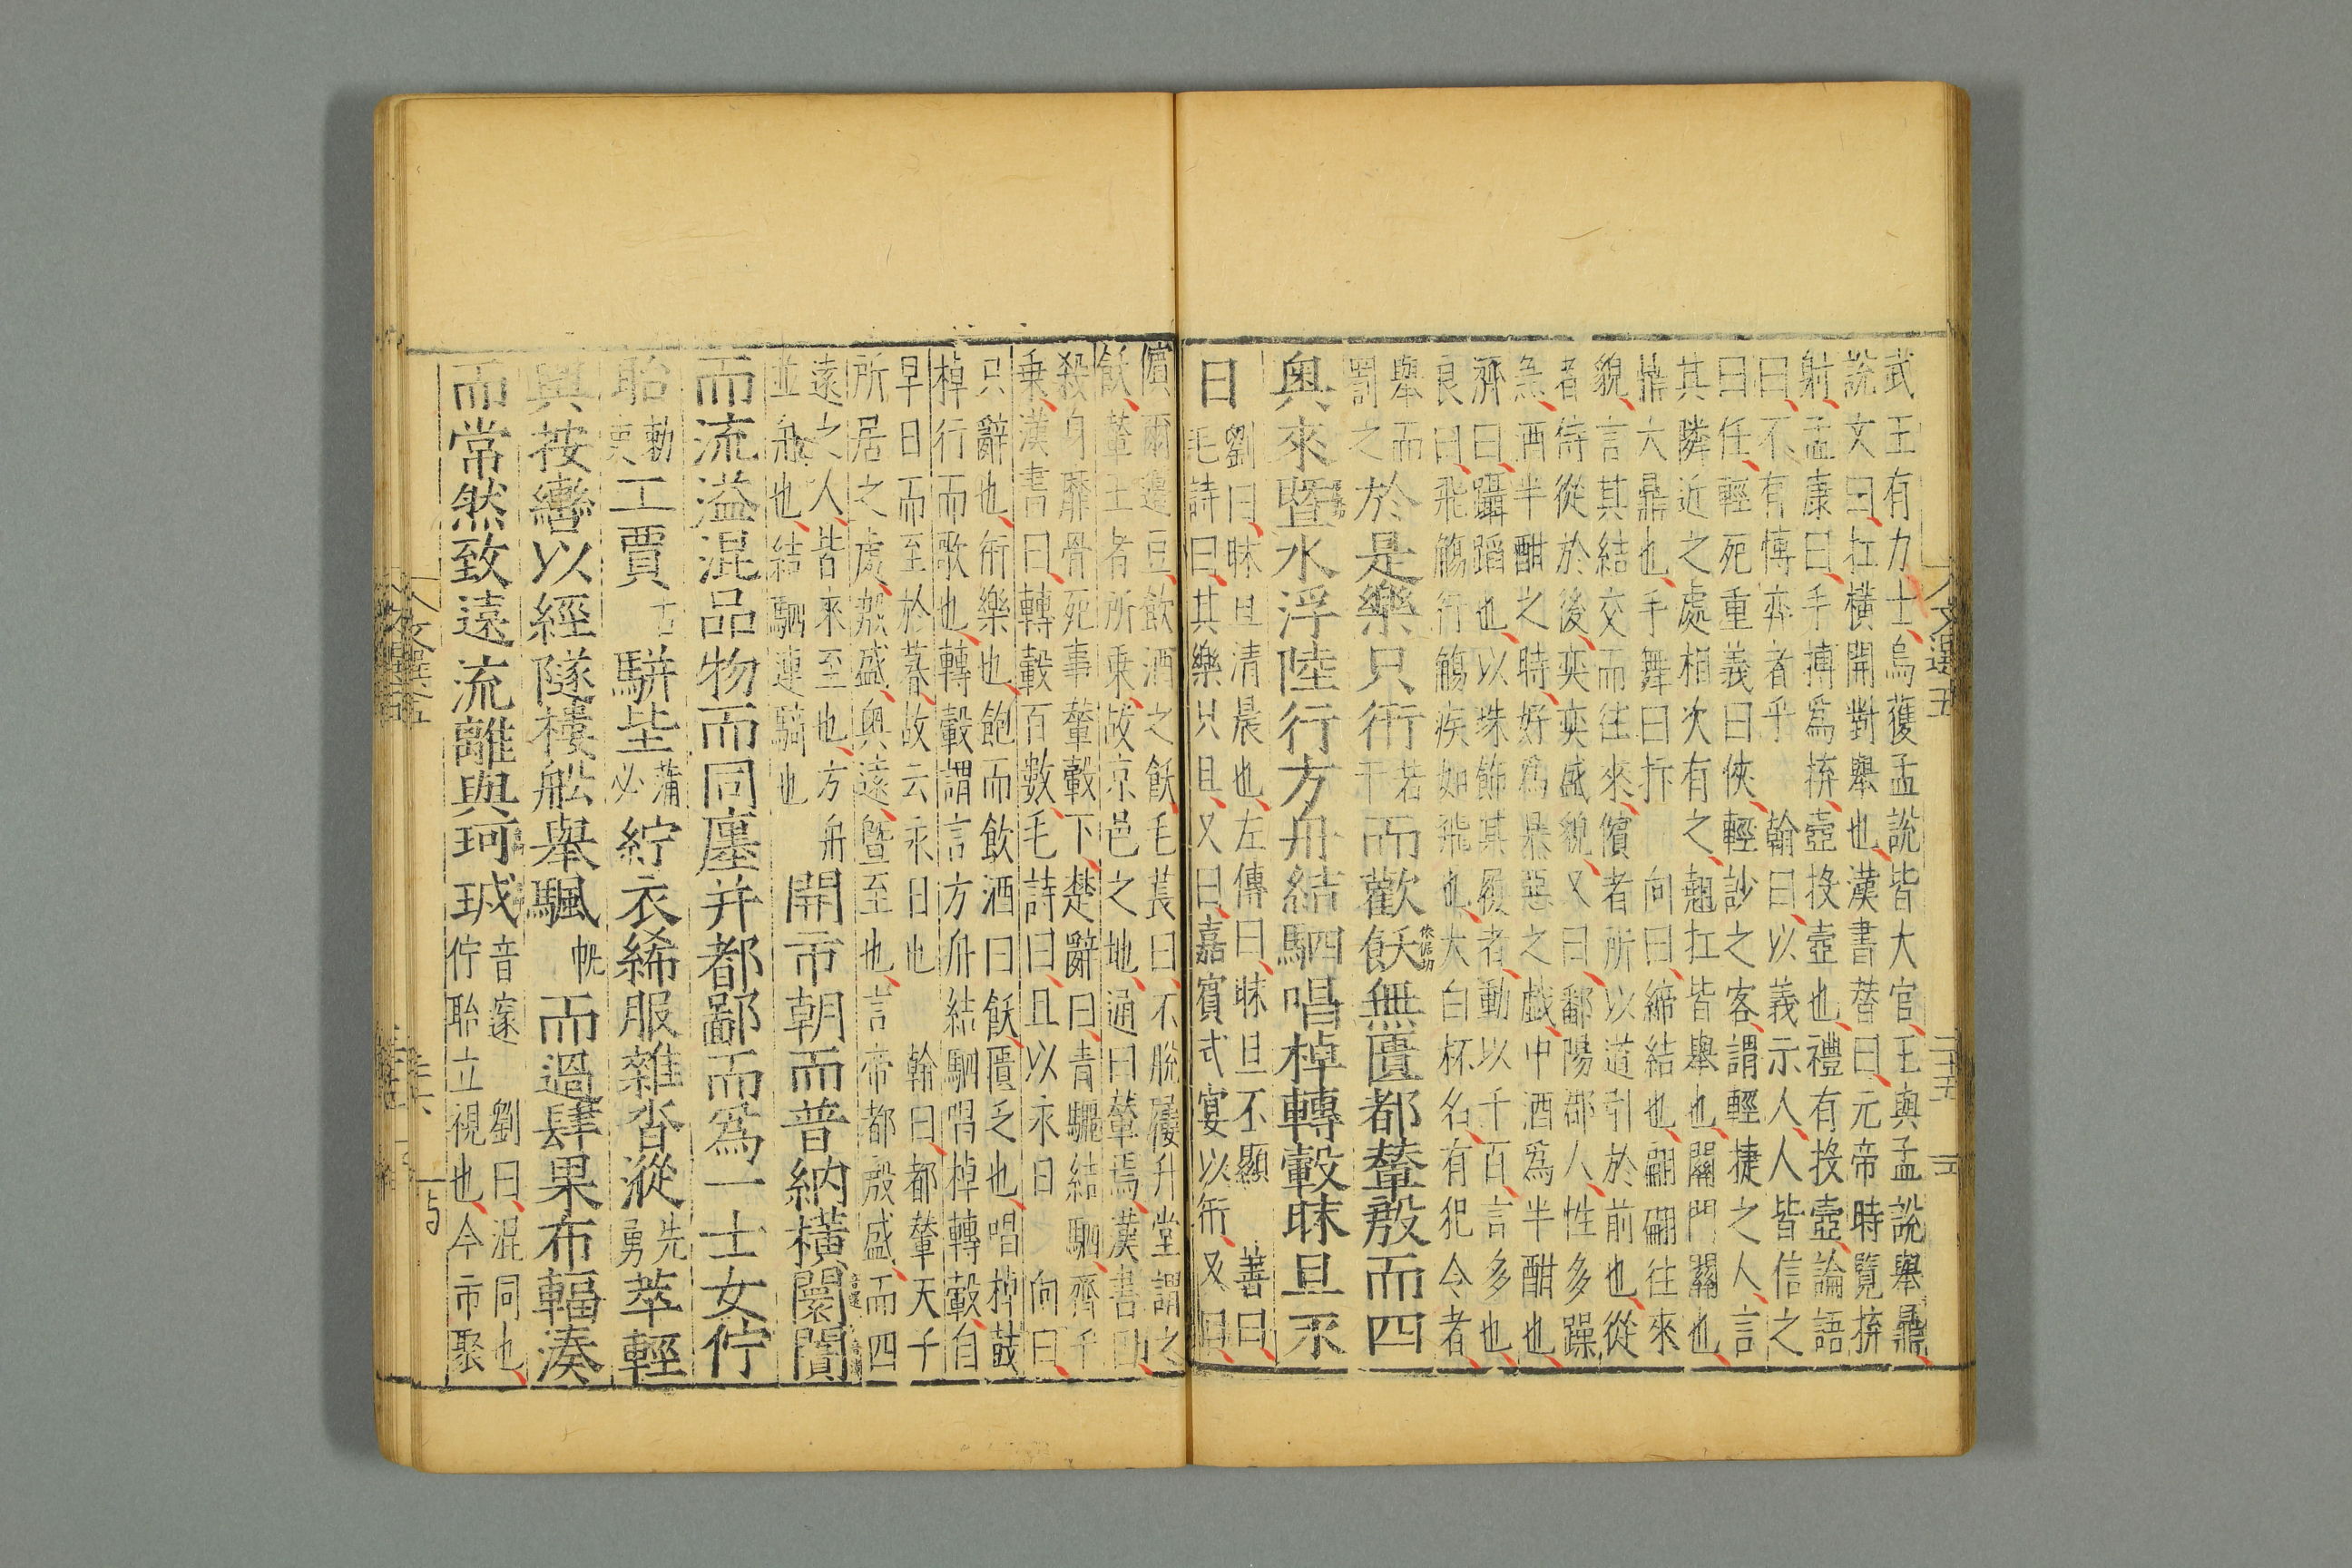 武王有力士烏獲孟說皆大官王與孟說舉鼎
說文曰扛橫開對舉也漢書替曰元帝時覽拚
射孟康曰手搏爲拚壺投壺也禮有投壺論語
曰不有博弈者乎 翰曰以義示人人皆信之
曰任輕死重義曰俠輕訬之客謂輕捷之人言
其隣近之處相次有之翹扛皆舉也關門關也
鼎大鼎也手舞曰抃 向曰締結也翩翩往來
貌言其結交而往來儐者所以道引於前也從
者侍從於後奕奕盛貌又曰鄱陽郡人性多躁
急酒半酣之時好爲暴惡之戲中酒爲半酣也
濟曰躡蹈也以珠飾其履者動以千百言多也
良曰飛觴行觴疾如飛也大白杯名有犯令者
舉而
罰之
於是樂只衎
若
干
而歡飫
無匱都輦殷而四
奥來暨水浮陸行方舟結駟唱棹轉轂昧旦永
日
劉曰昧旦清晨也左傳曰昧旦不顯 善曰
毛詩曰其樂只且又曰嘉賓式宴以衎又曰
儐爾籩豆飲酒之飫毛萇曰不脫屨升堂謂之
飫輦王者所乘故京邑之地通曰輦焉漢書曰
殺身靡骨死事輦轂下楚辭曰青驪結駟齊千
乗漢書曰轉轂百數毛詩曰且以永日 向曰
只辭也衎樂也飽而飲酒曰飫匱乏也唱棹鼓
棹行而歌也轉轂謂言方舟結駟唱棹轉轂自
早日而至於暮故云永日也 翰曰都輦天子
所居之處殷盛奥遠暨至也言帝都殷盛而四
遠之人皆來至也方舟
並舟也結駟連騎也
開市朝而普納橫闤闠
而流溢混品物而同廛并都鄙而爲一士女佇
眙
勅
吏
工賈
古
駢坒
蒲
必
紵衣絺服雜沓漎
先
勇
萃輕
輿按轡以經隧樓舩舉颿
帆
而過肆果布輻湊
而常然致遠流離與珂珬
音
佇眙立視也今市聚
劉曰混同也
文選五